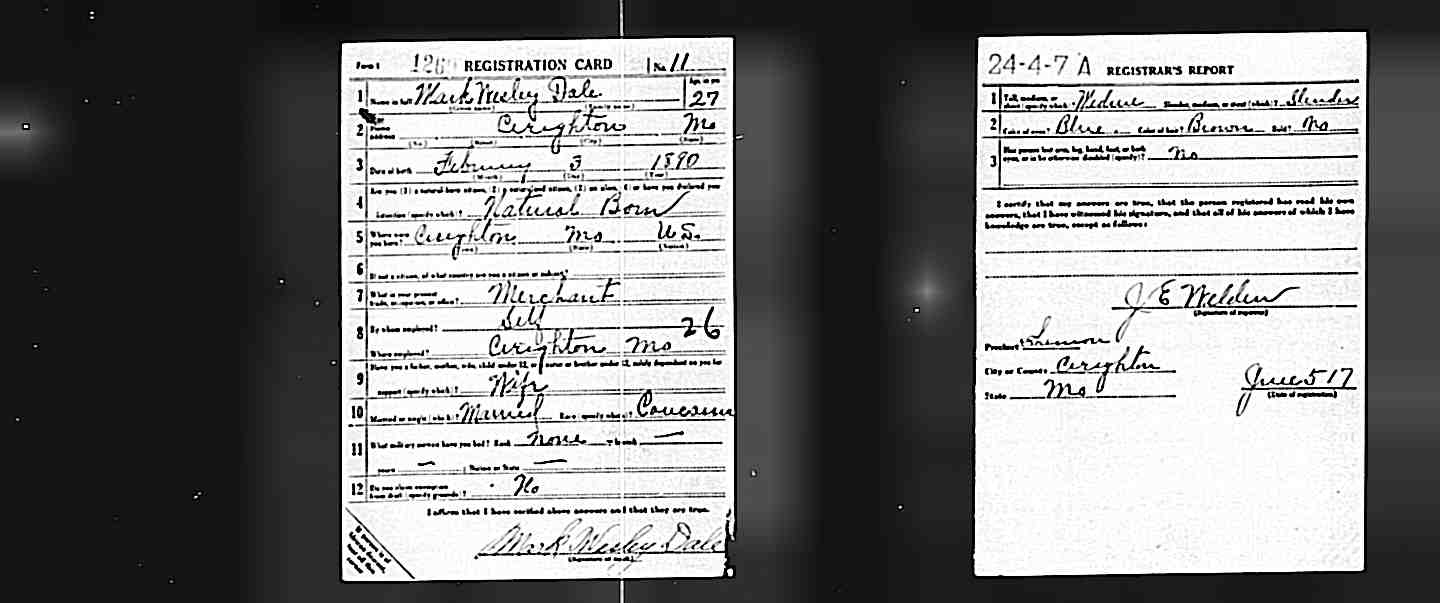 Form 1 126 REGISTRATION CARD No. 11
1 Name in full Mark Wesley Dale Age, in yrs 27
(Given name) (Family name)
2 Home address Creighton Mo
(No.) (Street) (City) (State)
3 Date of birth February 3 1890
(Month) (Day) (Year)
4 Are you (1) a natural born citizen, (2) a naturalized citizen, (3) an alien, (4) or have you declared your
intention (specify which)? Natural Born
5 Where were you born? Creighton Mo U.S.
(Town) (State) (Nation)
6 If not a citizen, of what country are you a citizen or subject?
7 What is your present trade, occupation, or office? Merchant
8 By whom employed? Self
26
Where employed? Creighton Mo
9 Have you a father, mother, wife, child under 12, or a sister or brother under 12, solely dependent on you for
support (specify which)? Wife
10 Married or single (which)? Married Race (specify which)? Caucasian
11 What military service have you had? Rank None branch —
years — Nation or State —
12 Do you claim exemption from draft (specify grounds)? No
I affirm that I have verified above answers and that they are true.
Mark Wesley Dale
(Signature or mark)
24-4-7 A REGISTRAR'S REPORT
1 Tall, medium, or short (specify which)? Medium Slender, medium, or stout (which)? Slender
2 Color of eyes? Blue Color of hair? Brown Bald? No
3 Has person lost arm, leg, hand, foot, or both eyes, or is he otherwise disabled (specify)? No
I certify that my answers are true, that the person registered has read his own
answers, that I have witnessed his signature, and that all of his answers of which I have
knowledge are true, except as follows:
J E Welden
(Signature of registrar)
Precinct
City or County Creighton
State Mo
June 5 17
(Date of registration)